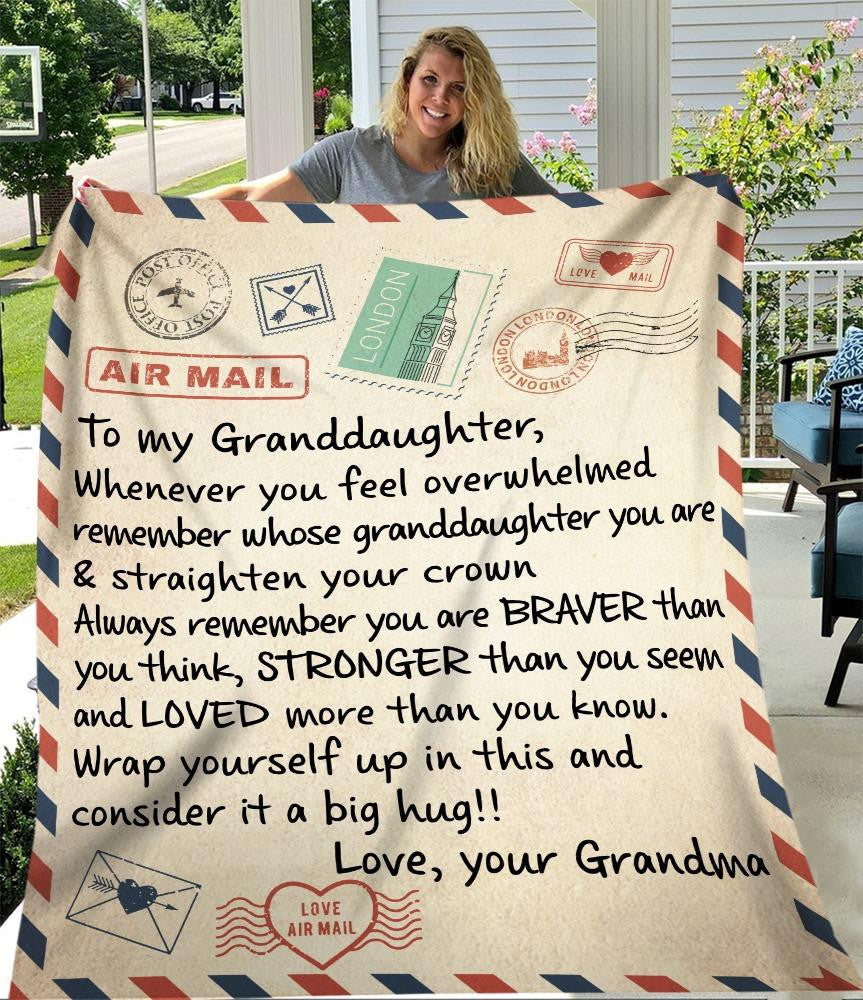 POST OFFICE POST OFFICE
LONDON
LOVE MAIL
LONDON LONDON LONDON LONDON
AIR MAIL
To my Granddaughter,
Whenever you feel overwhelmed
remember whose granddaughter you are
& straighten your crown
Always remember you are BRAVER than
you think, STRONGER than you seem
and LOVED more than you know.
Wrap yourself up in this and
consider it a big hug!!
Love, your Grandma
LOVE
AIR MAIL